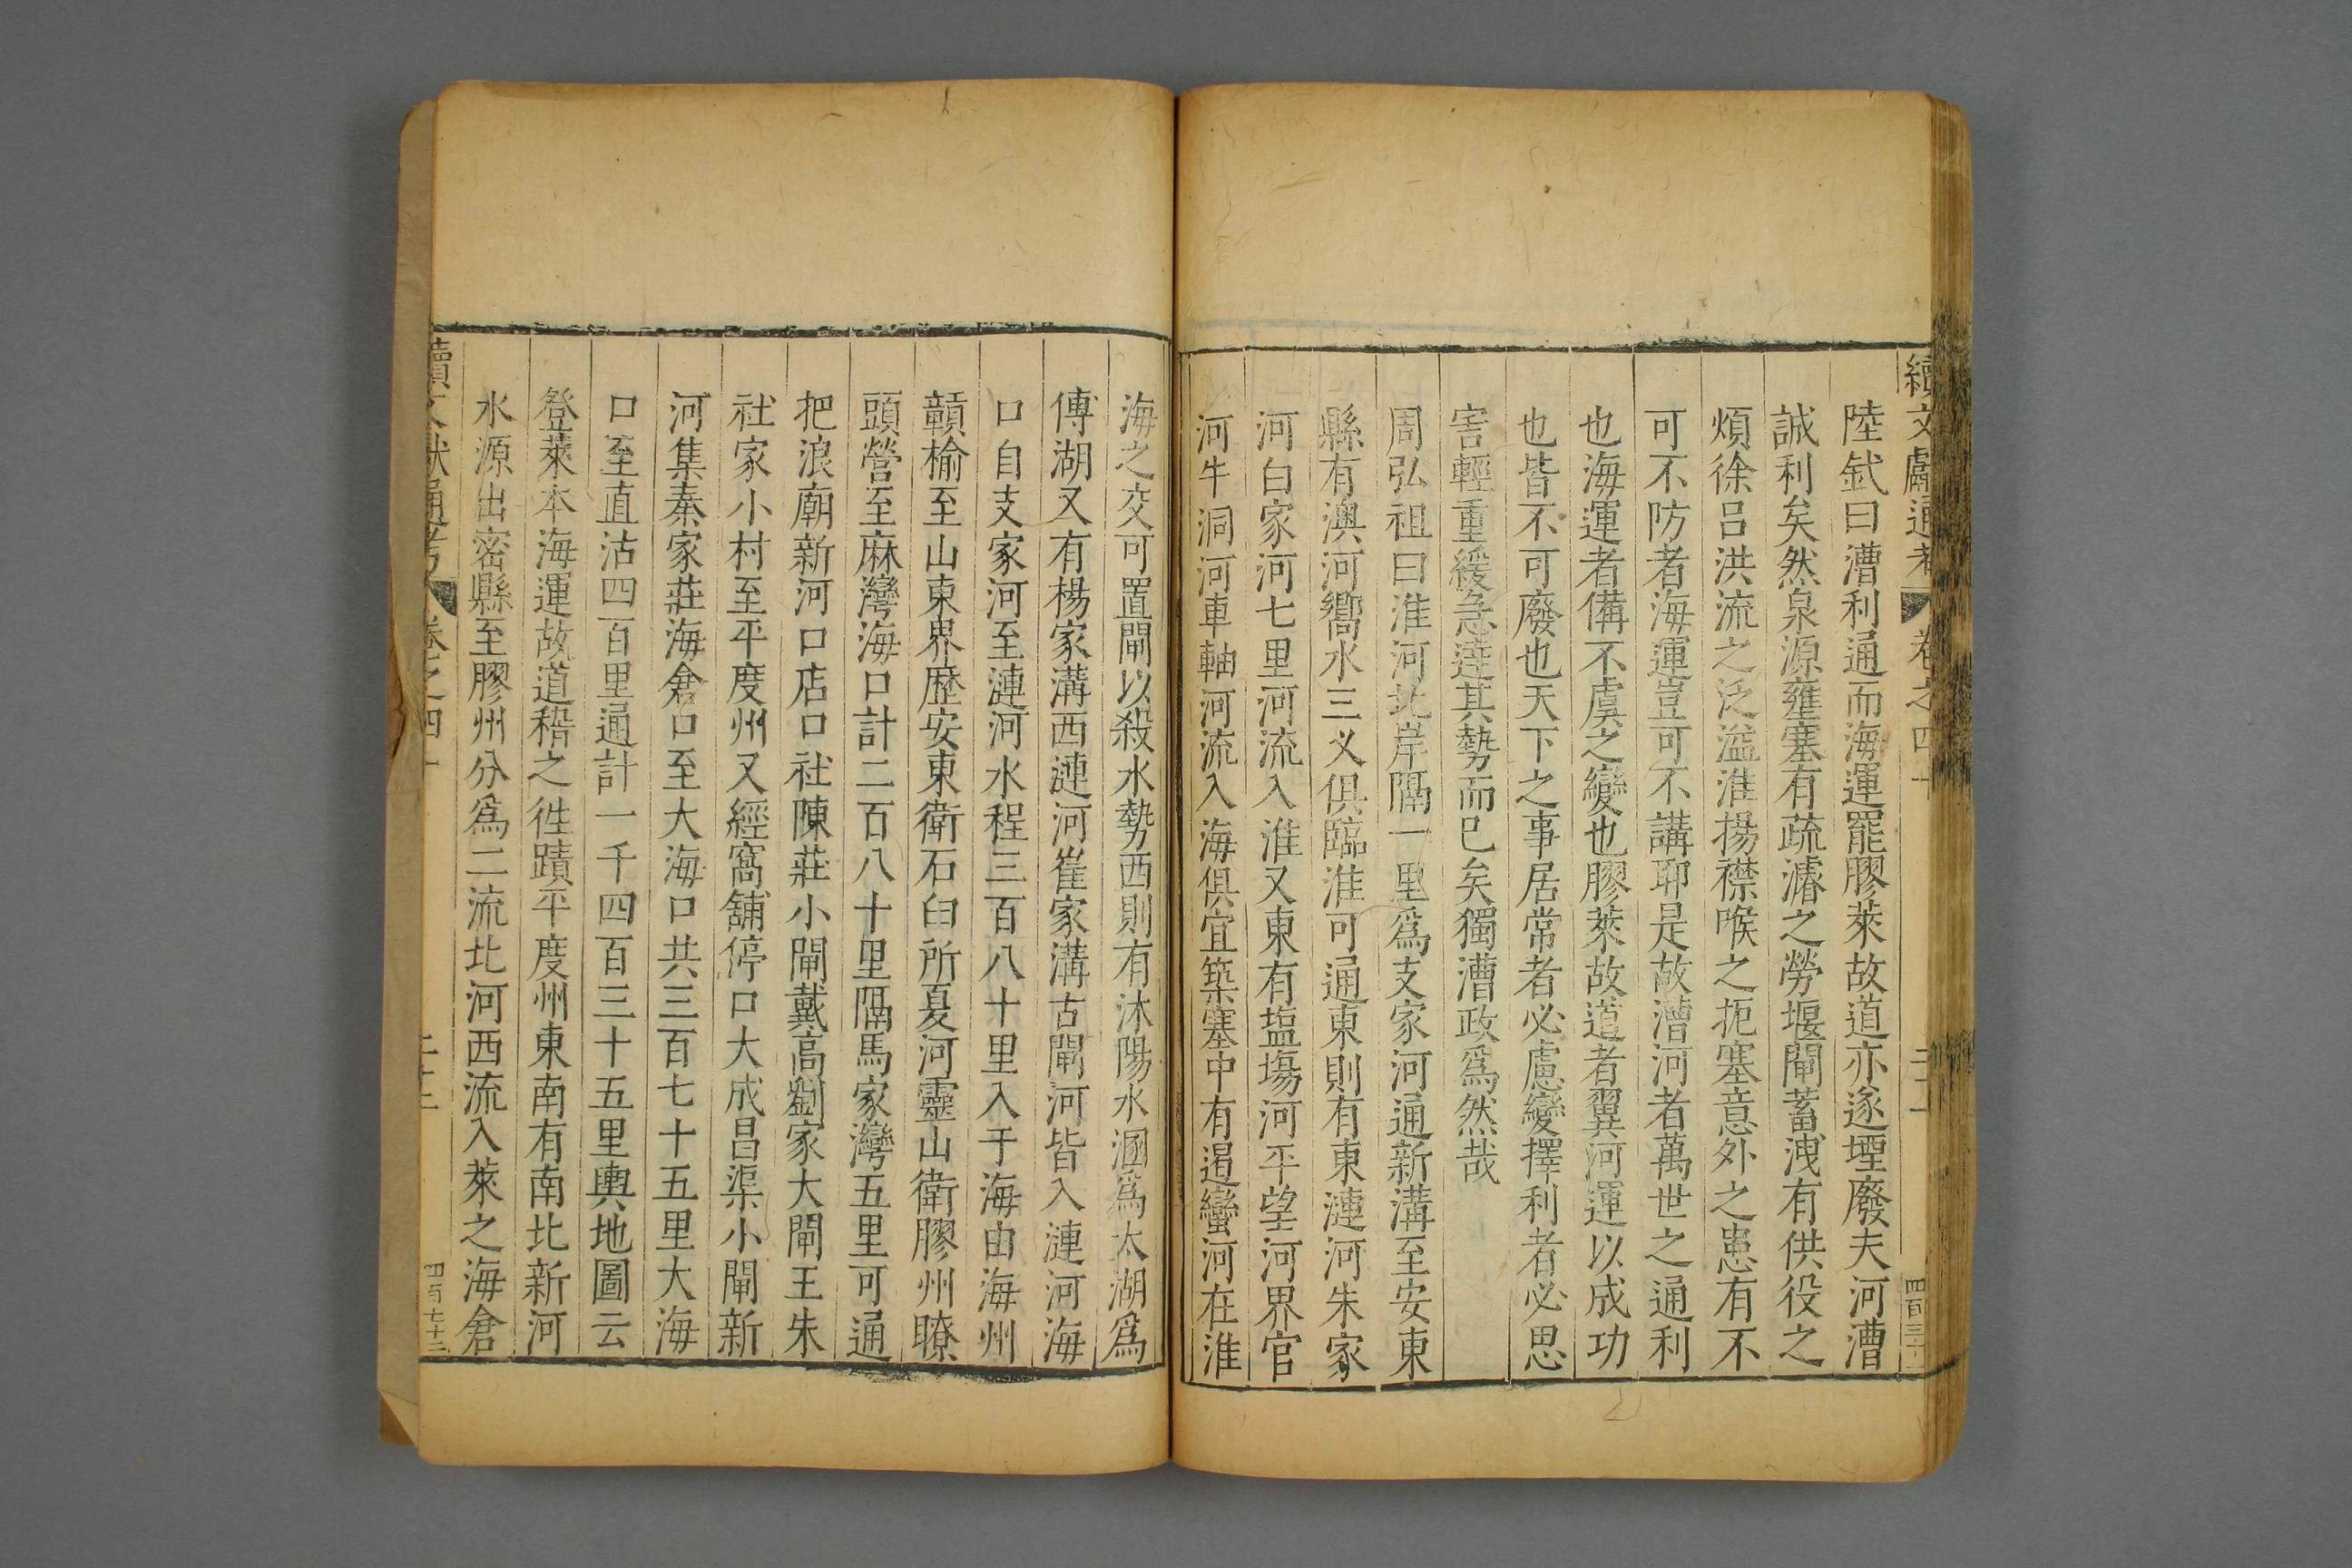 續文獻通考 卷之四十
陸釴曰漕利通而海運罷膠萊故道亦遂堙廢夫河漕
誠利矣然泉源壅塞有疏濬之勞堰閘蓄洩有供役之
煩徐呂洪流之泛溢淮揚襟喉之扼塞意外之患有不
可不防者海運豈可不講耶是故漕河者萬世之通利
也海運者備不虞之變也膠萊故道者翼河運以成功
也皆不可廢也天下之事居常者必慮變擇利者必思
害輕重緩急達其勢而已矣獨漕政爲然哉
周弘祖曰淮河北岸隔一里爲支家河通新溝至安東
縣有澳河嚮水三义俱臨淮可通東則有東漣河朱家
河白家河七里河流入淮又東有塩塲河平望河界官
河牛洞河車軸河流入海俱宜築塞中有遏蠻河在淮
海之交可置閘以殺水勢西則有沐陽水溷爲太湖爲
傅湖又有楊家溝西漣河崔家溝古閘河皆入漣河海
口自支家河至漣河水程三百八十里入于海由海州
贛榆至山東界歷安東衛石臼所夏河靈山衛膠州瞭
頭營至麻灣海口計二百八十里隔馬家灣五里可通
把浪廟新河口店口社陳莊小閘戴高劉家大閘王朱
社家小村至平度州又經窩舖停口大成昌渠小閘新
河集秦家莊海倉口至大海口共三百七十五里大海
口至直沽四百里通計一千四百三十五里輿地圖云
登萊本海運故道稽之徃蹟平度州東南有南北新河
水源出密縣至膠州分爲二流北河西流入萊之海倉
續文獻通考 卷之四十